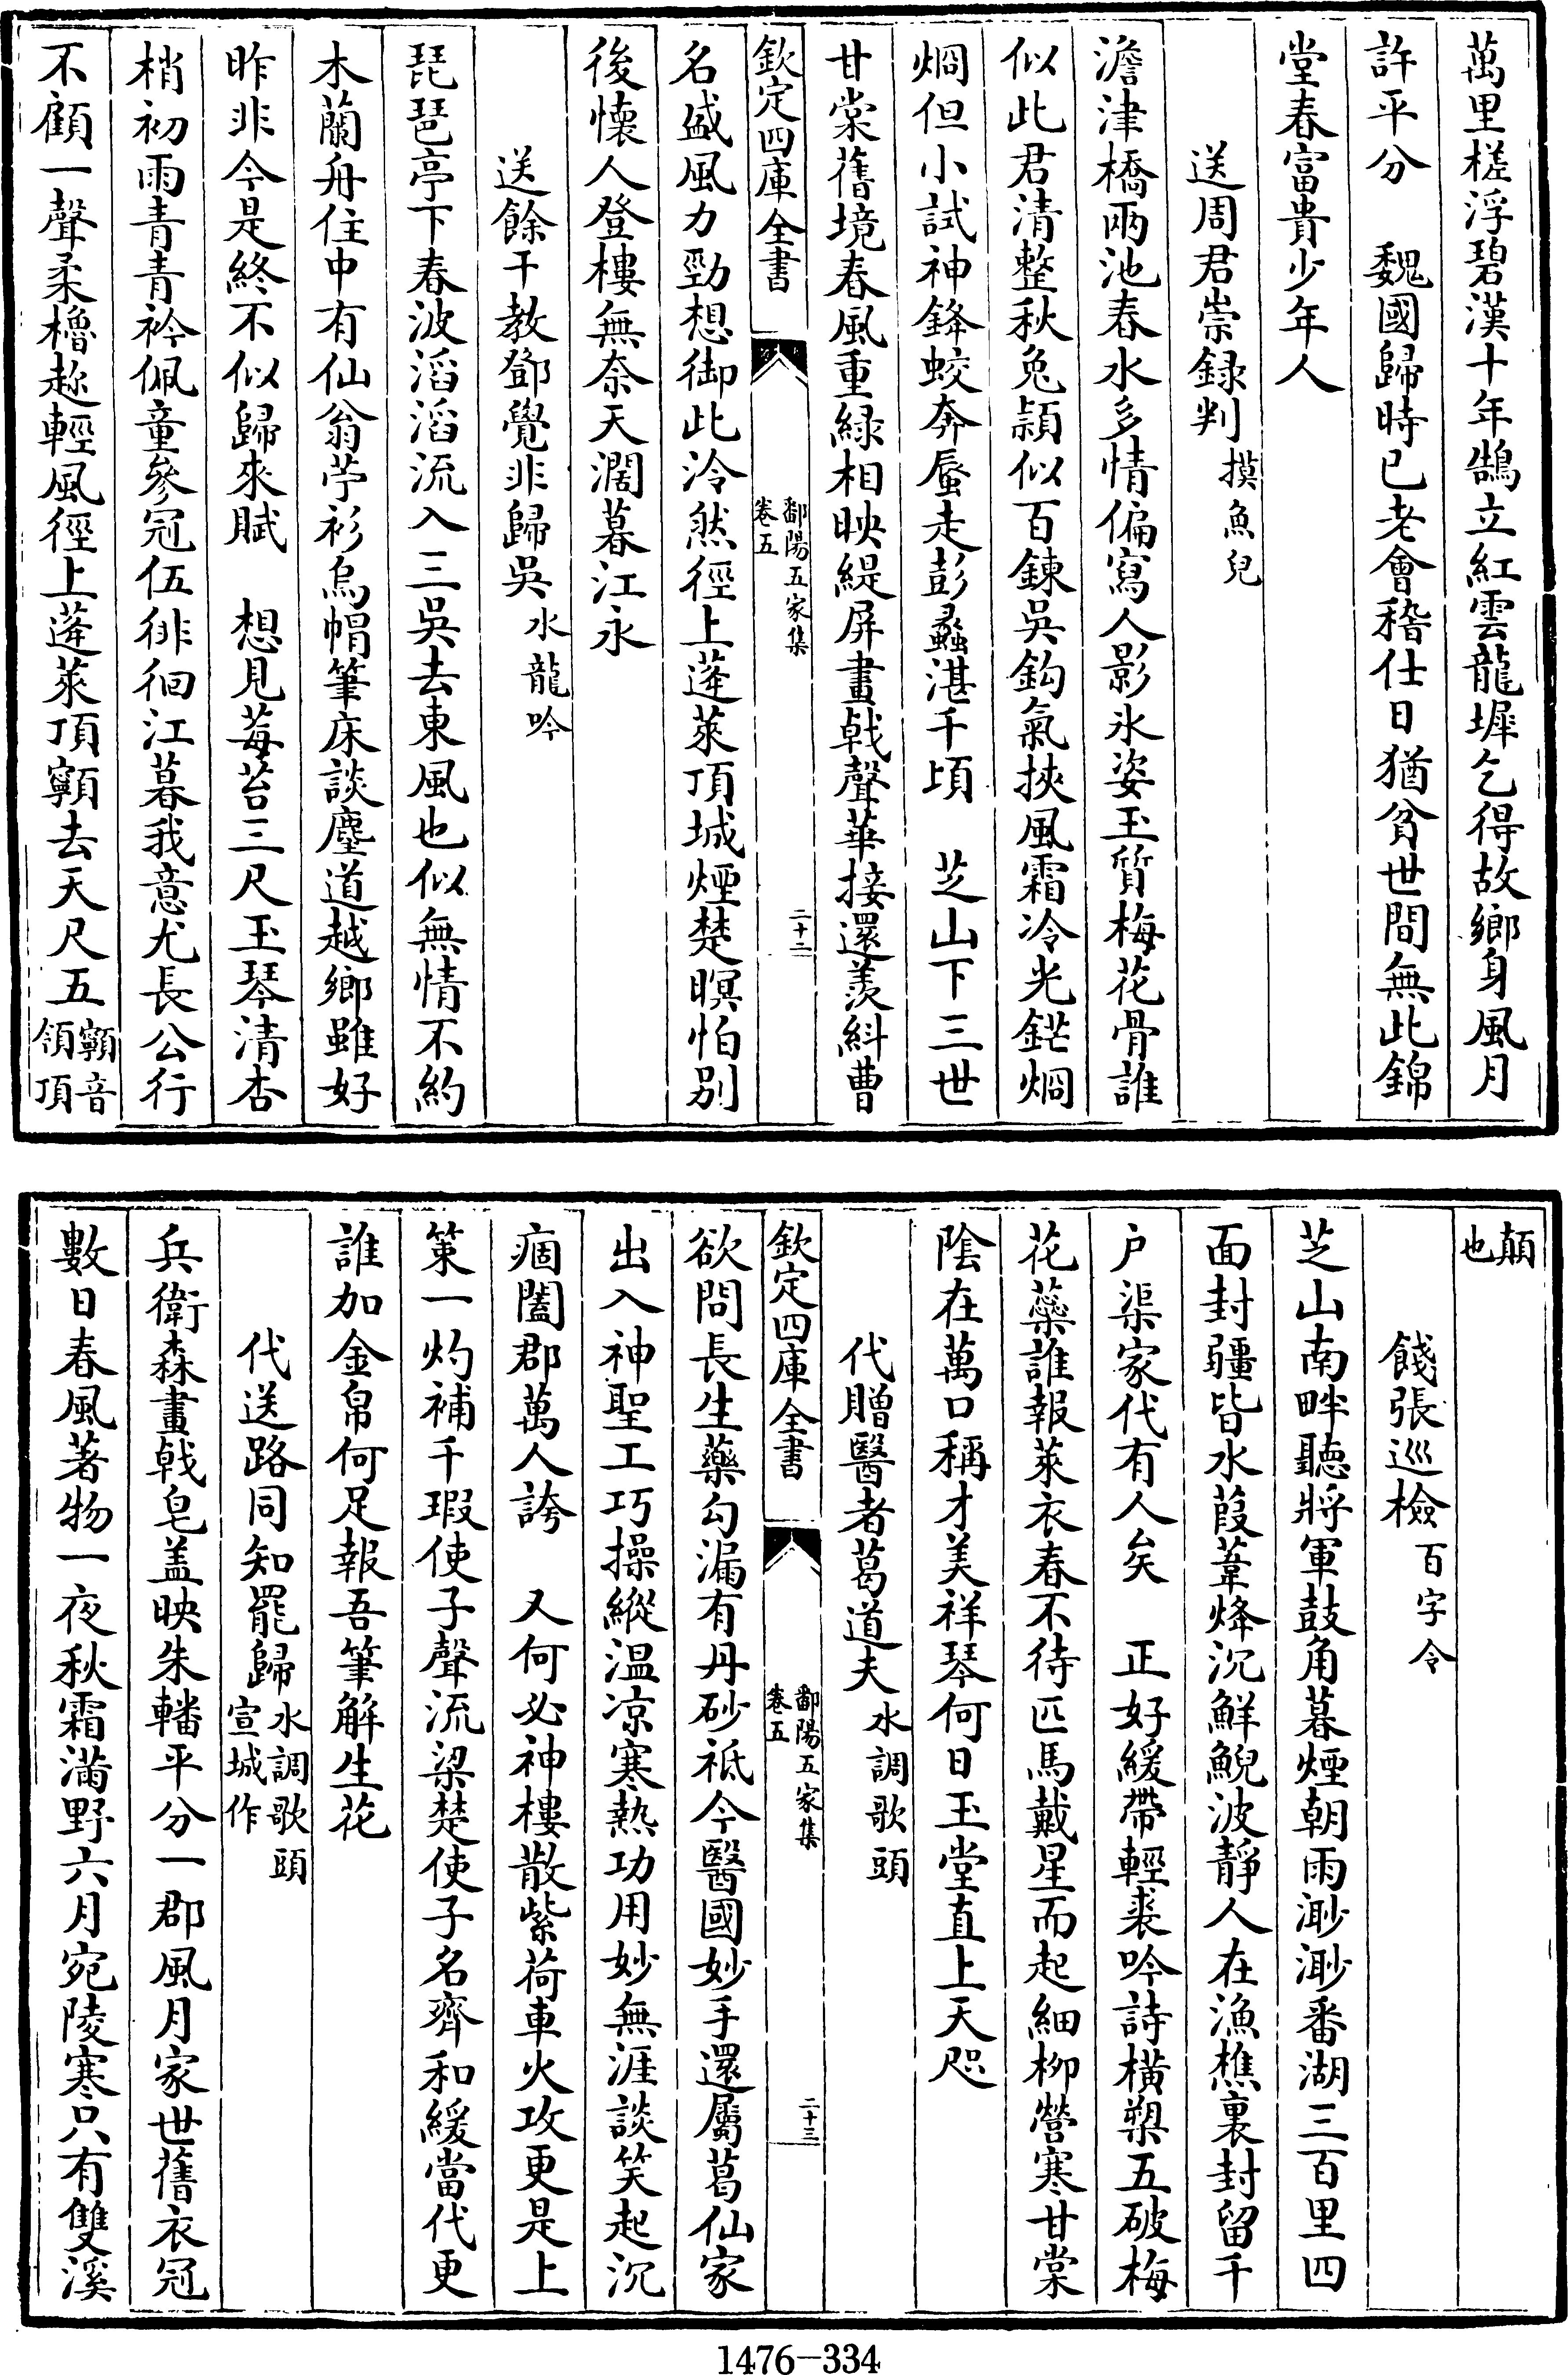 萬里槎浮碧漢十年鵠立紅雲龍墀乞得故鄉身風月
許平分　魏國歸時已老會稽仕日猶貧世間無此錦
堂春富貴少年人
送周君崇録判摸魚兒
澹津橋兩池春水多情偏寫人影氷姿玉質梅花骨誰
似此君清整秋兔頴似百鍊吳鈎氣挾風霜冷光鋩烱
烱但小試神鋒蛟奔蜃走彭蠡湛千頃　芝山下三世
甘棠舊境春風重緑相映緹屏畫㦸聲華接還羨紏曹
欽定四庫全書
鄱陽五家集
卷五
二十二
名盛風力勁想御此泠然徑上蓬萊頂城煙楚暝怕别
後懷人登樓無奈天濶暮江永
送餘干教鄧覺非歸吳水龍吟
琵琶亭下春波滔滔流入三吳去東風也似無情不約
木蘭舟住中有仙翁苧衫烏帽筆床談麈道越鄉雖好
昨非今是終不似歸來賦　想見莓苔三尺玉琴清杏
梢初雨青青衿佩童參冠伍徘徊江暮我意尤長公行
不顧一聲柔櫓趂輕風徑上蓬萊頂顐去天尺五顐音
領頂
顛
也
餞張巡檢百字令
芝山南畔聽將軍鼓角暮煙朝雨渺渺番湖三百里四
面封疆皆水葭葦烽沉鮮鯢波靜人在漁樵裏封留千
户渠家代有人矣　正好緩帶輕裘吟詩橫槊五破梅
花蘂誰報萊衣春不待匹馬戴星而起細柳營寒甘棠
陰在萬口稱才美祥琴何日玉堂直上天咫
代贈醫者葛道夫水調歌頭
欽定四庫全書
鄱陽五家集
卷五
二十三
欲問長生藥勾漏有丹砂祗今醫國妙手還屬葛仙家
出入神聖工巧操縱温凉寒熱功用妙無涯談笑起沉
痼闔郡萬人誇　又何必神樓散紫荷車火攻更是上
策一灼補千瑕使子聲流梁楚使子名齊和緩當代更
誰加金帛何足報吾筆解生花
代送路同知罷歸水調歌頭
宣城作
兵衛森畫㦸皂盖映朱轓平分一郡風月家世舊衣冠
數日春風著物一夜秋霜滿野六月宛陵寒只有雙溪
1476-334